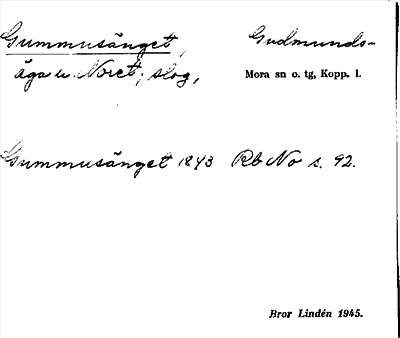 Gummusänget, Gudmunds-
äga u. Noret, slog, Mora sn o. tg, Kopp. l.
Gummusänget 1843 Rb No s. 92.
Bror Lindén 1945.